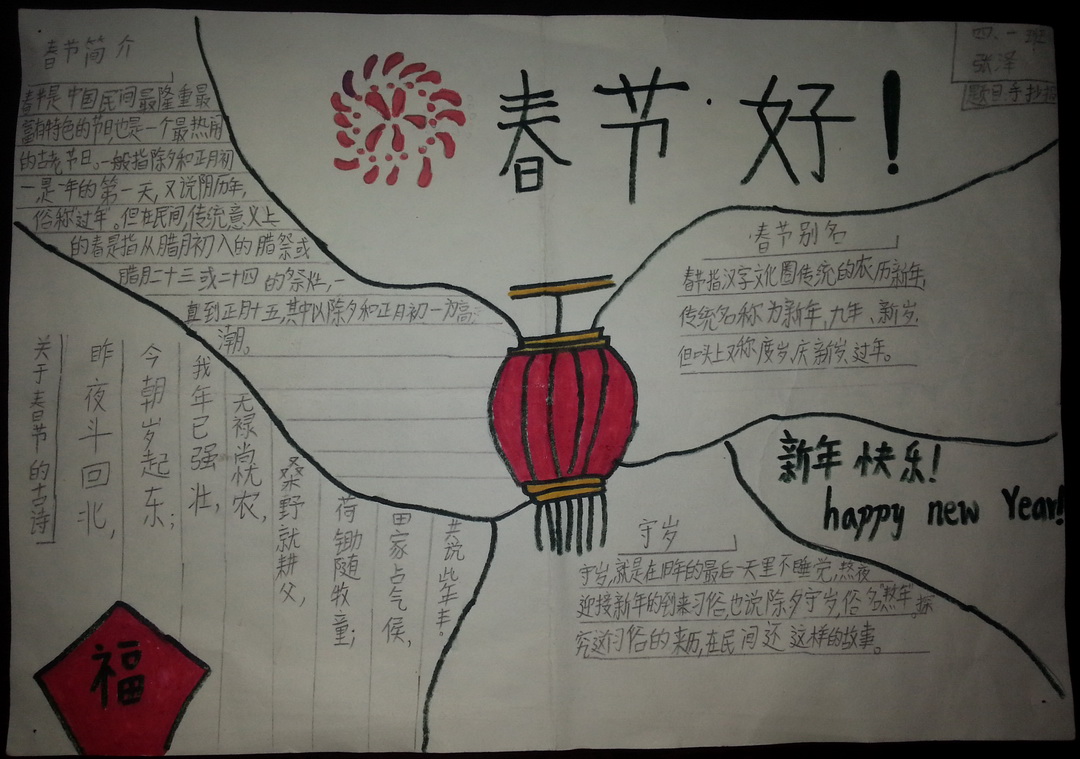 春节好!
四、一班
张泽
题目手抄报
春节简介
春节是中国民间最隆重最
富有特色的节日,也是一个最热闹
的古老节日。一般指除夕和正月初
一,是一年的第一天,又说阴历年,
俗称过年。但在民间,传统意义上
的春是指从腊月初入的腊祭或
腊月二十三或二十四的祭灶,一
直到正月十五,其中以除夕和正月初一为高
潮。
春节别名
春节指汉字文化圈传统的农历新年,
传统名称为新年、九年、新岁,
但口头上又称度岁、庆新岁、过年。
关于春节的古诗
昨夜斗回北,
今朝岁起东;
我年已强壮,
无禄尚忧农,
桑野就耕父,
荷锄随牧童;
田家占气候,
共说此年丰。
新年快乐!
happy new Year!
守岁
守岁,就是在旧年的最后一天里不睡觉,熬夜
迎接新年的到来习俗,也说除夕守岁,俗名"熬年",探
究这习俗的来历,在民间还 这样的故事。
福